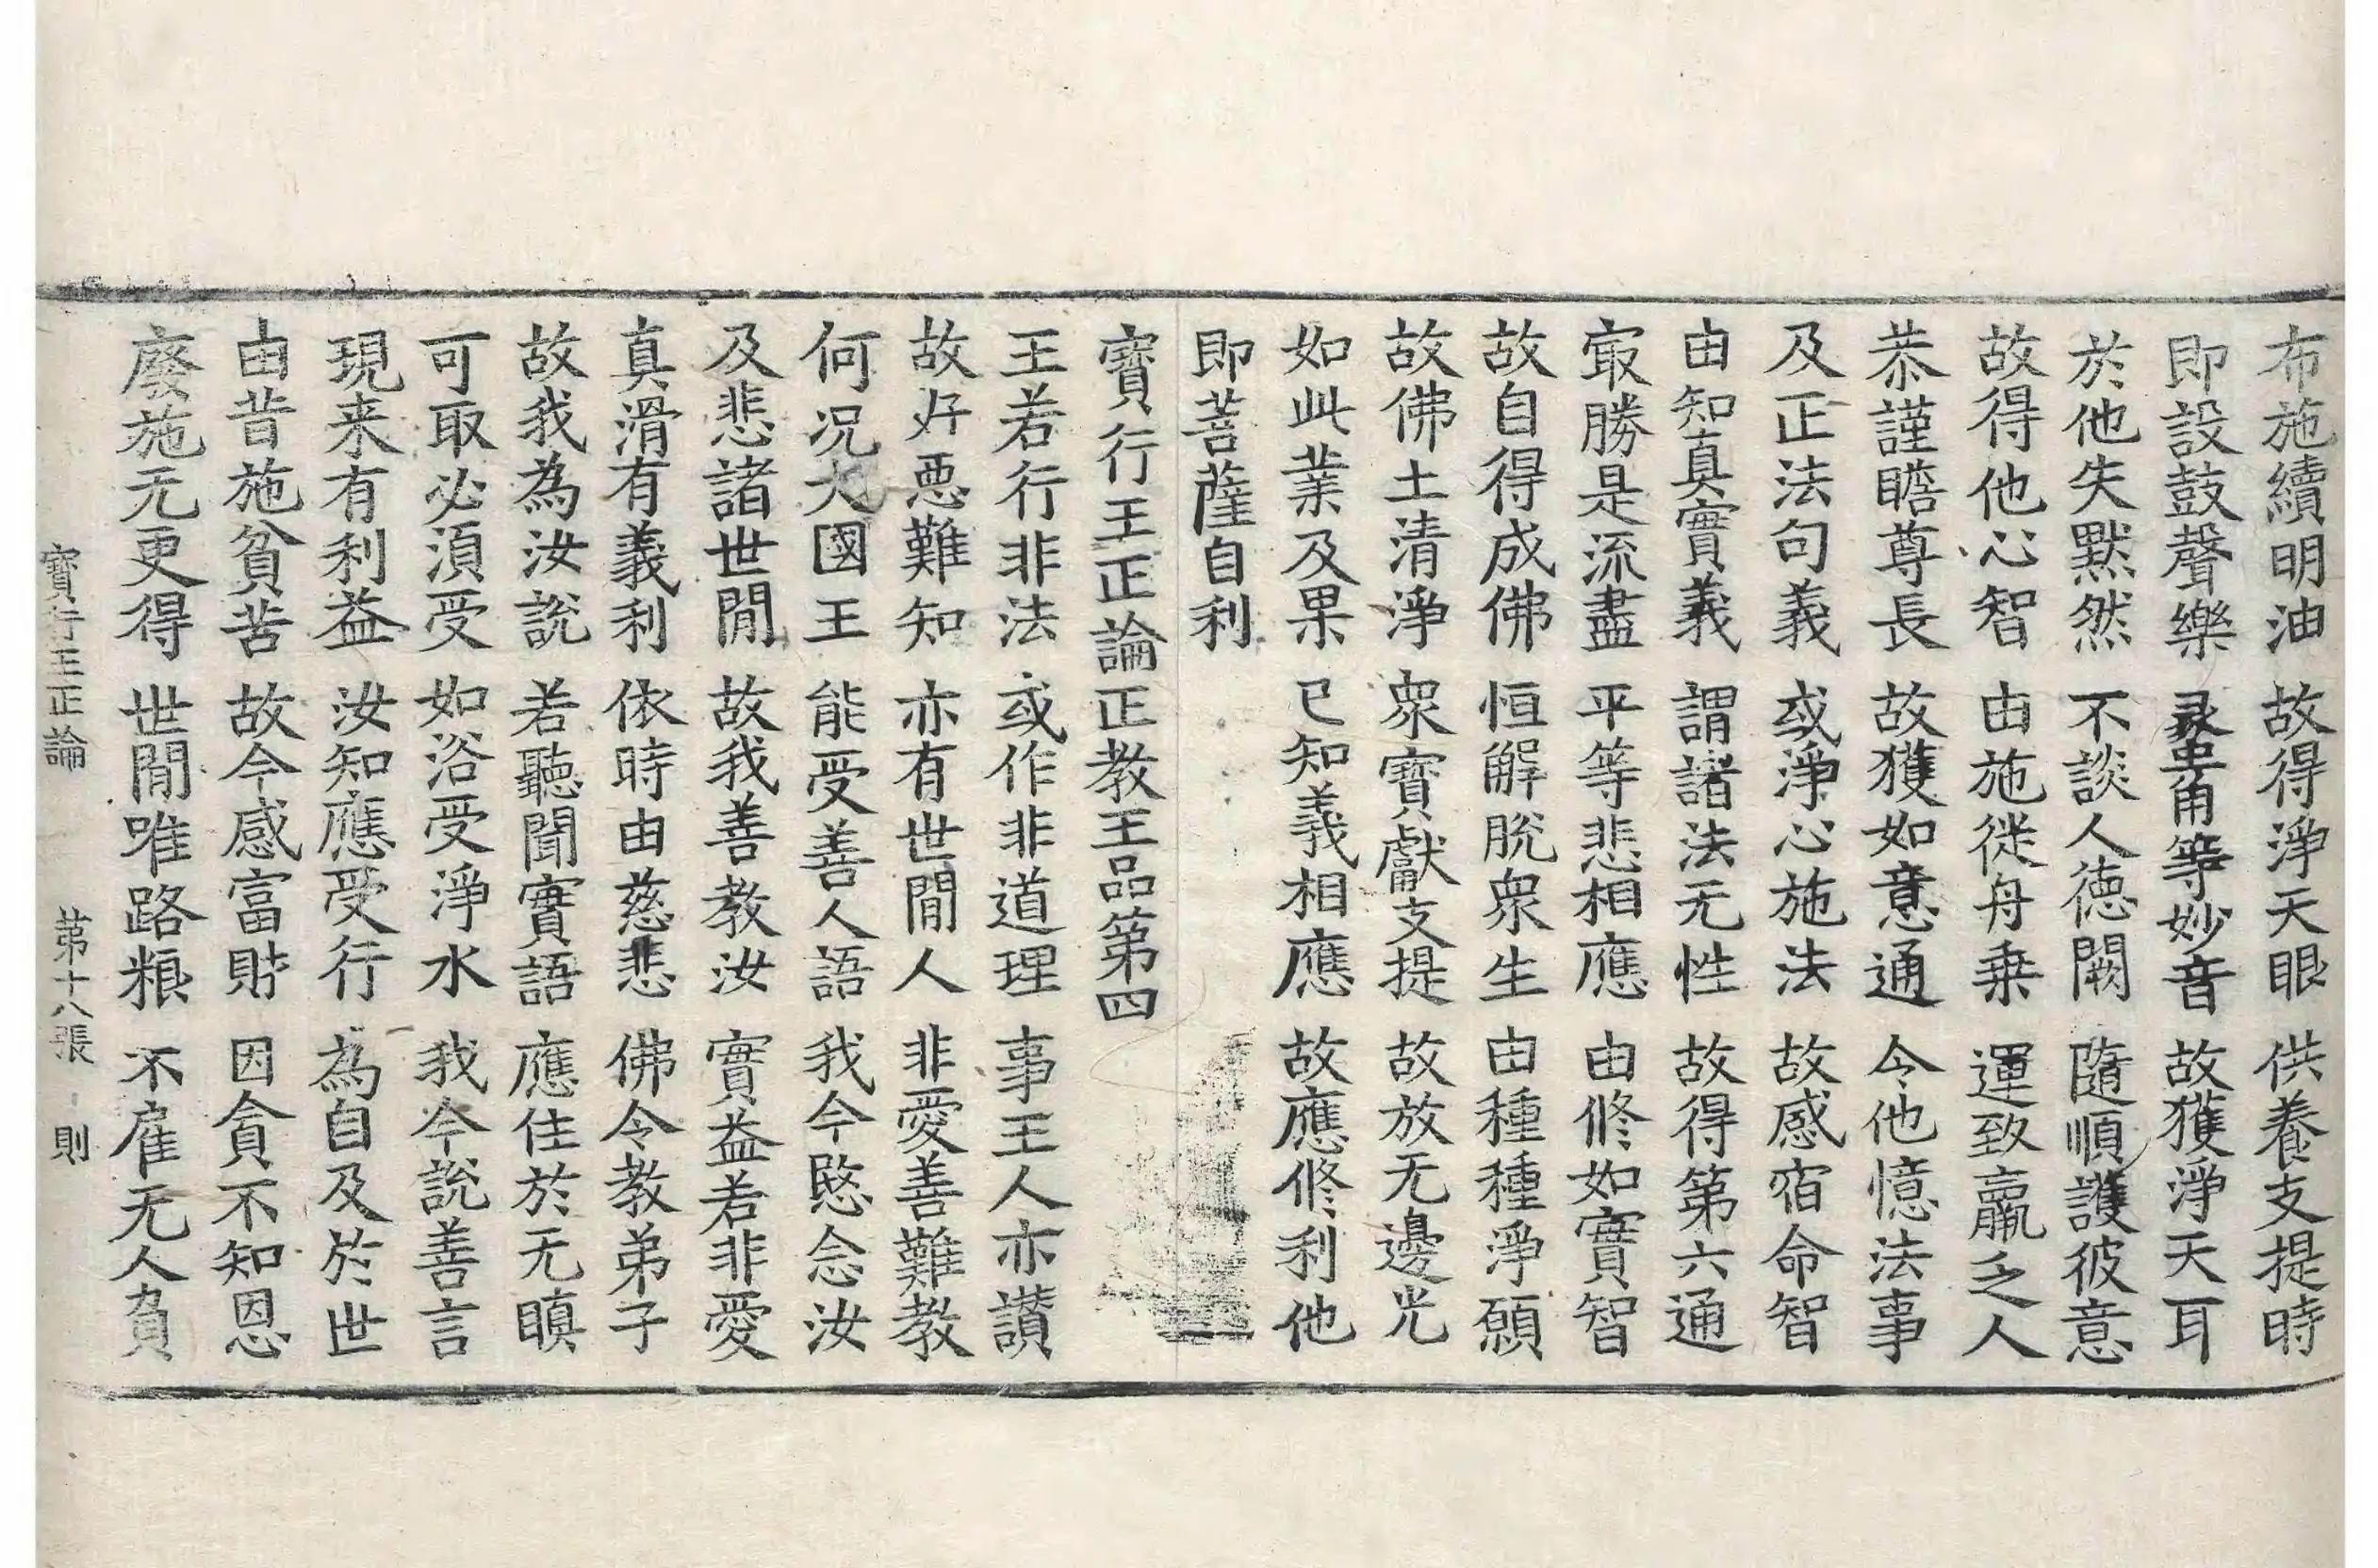 布施續明油 故得淨天眼 供養支提時
即設鼓聲樂 蠡角等妙音 故獲淨天耳
於他失默然 不談人徳闕 隨順護彼意
故得他心智 由施徙舟乗 運致羸乏人
恭謹瞻尊長 故獲如意通 令他憶法事
及正法句義 或淨心施法 故感宿命智
由知真實義 謂諸法无性 故得第六通
冣勝是流盡 平等悲相應 由修如實智
故自得成佛 恒解脫衆生 由種種淨願
故佛土清淨 衆寶獻支提 故放无邊光
如此業及果 已知義相應 故應修利他
即菩薩自利
寶行王正論正教王品第四
王若行非法 或作非道理 事王人亦讃
故好惡難知 亦有世間人 非愛善難教
何况大國王 能受善人語 我今愍念汝
及悲諸世間 故我善教汝 實益若非愛
真滑有義利 依時由慈悲 佛令教弟子
故我為汝說 若聽聞實語 應住於无瞋
可取必須受 如浴受淨水 我今說善言
現来有利益 汝知應受行 為自及於世
由昔施貧苦 故今感富財 因貪不知恩
廢施无更得 世間唯路粮 不雇无人負
寶行王正論 第十八張 則